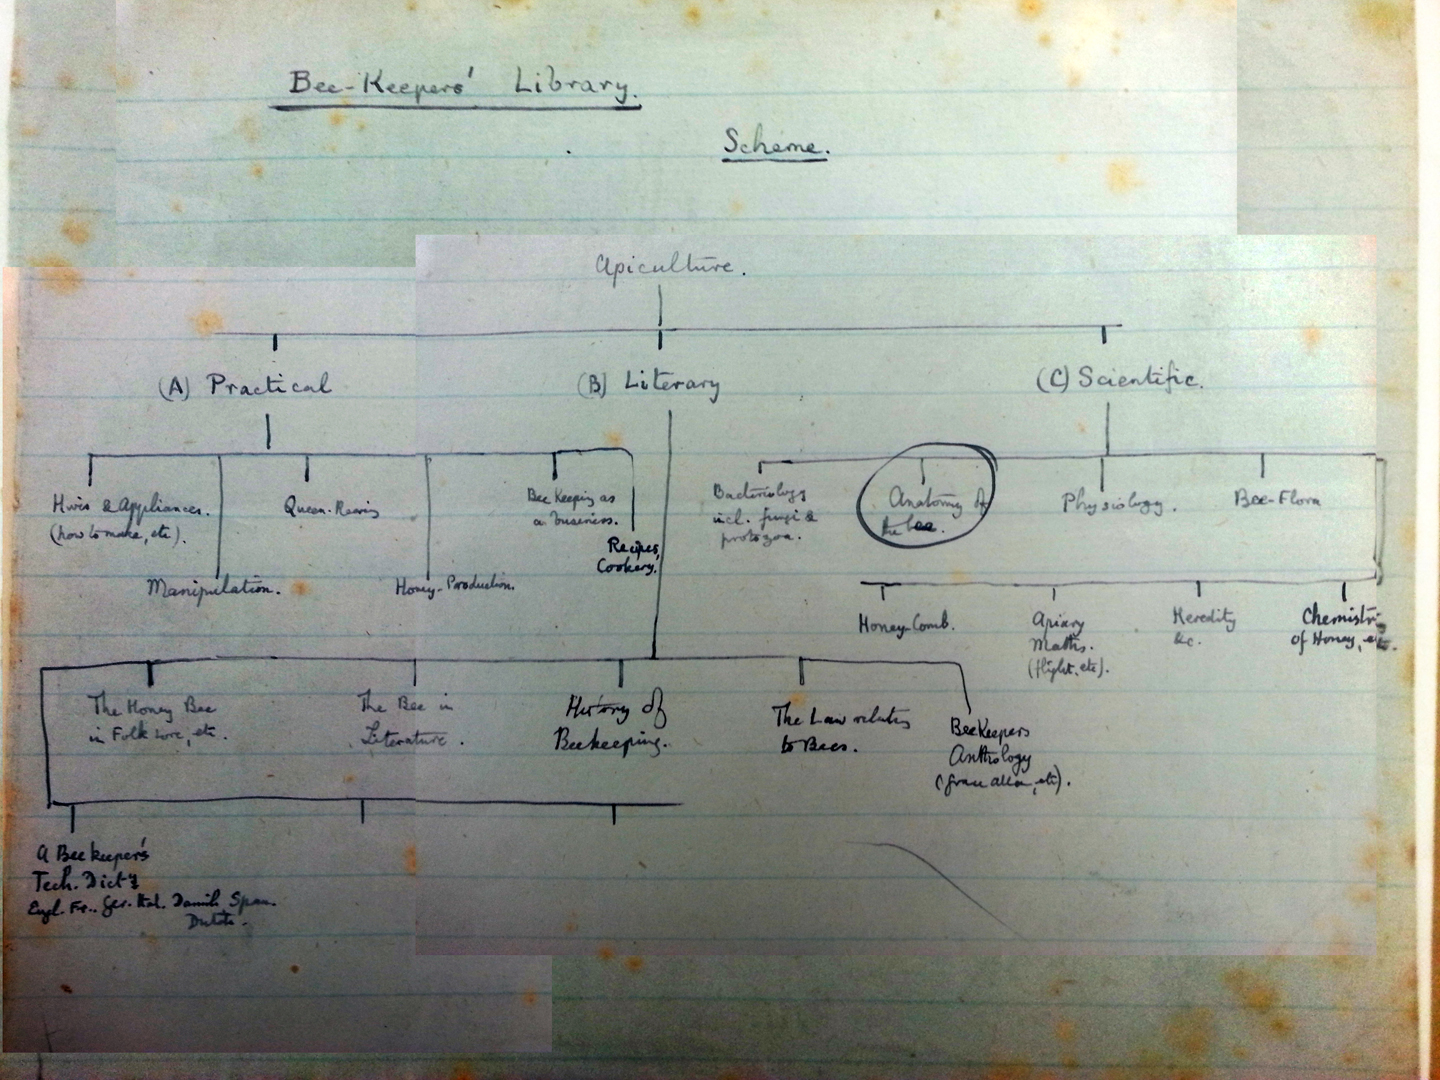 Bee-Keepers' Library.
Scheme.
Apiculture.
(A) Practical
(B) Literary
(C) Scientific.
Hives & Appliances.
(how to make, etc).
Manipulation.
Queen-Rearing
Honey-Production.
Bee Keeping as
a business.
Recipes,
Cookery.
Bacteriology
incl. fungi &
protozoa.
Anatomy of
the bee.
Physiology.
Bee-Flora
Honey-Comb.
Apiary
Maths.
(flight, etc).
Heredity
&c.
Chemistry
of Honey, etc.
The Honey Bee
in Folk lore, etc.
The Bee in
Literature.
History of
Beekeeping.
The Law relating
to Bees.
BeeKeepers
Anthology
etc).
A Beekeeper's
Tech. Dicty
Engl. Fr. Ger. Ital. Danish Span.
Dutch.